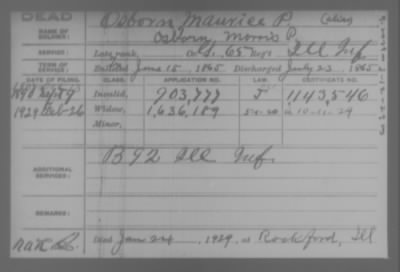 DEAD
NAME OF SOLDIER: Osborn, Maurice P. (alias)
Osborn, Morris P.
SERVICE: Late rank, Co. I, 65 Reg't Ill Inf.
TERM OF SERVICE: Enlisted June 15, 1865 Discharged July 23, 1865
DATE OF FILING. CLASS. APPLICATION NO. LAW. CERTIFICATE NO.
Invalid, 903,777 J 1143,546
1929 Feb-26 Widow, 1,636,189 5-1-20 in 10-11-29
Minor,
ADDITIONAL SERVICES: B 92 Ill Inf.
REMARKS:
Died Jan 24, 1929, at Rockford, Ill